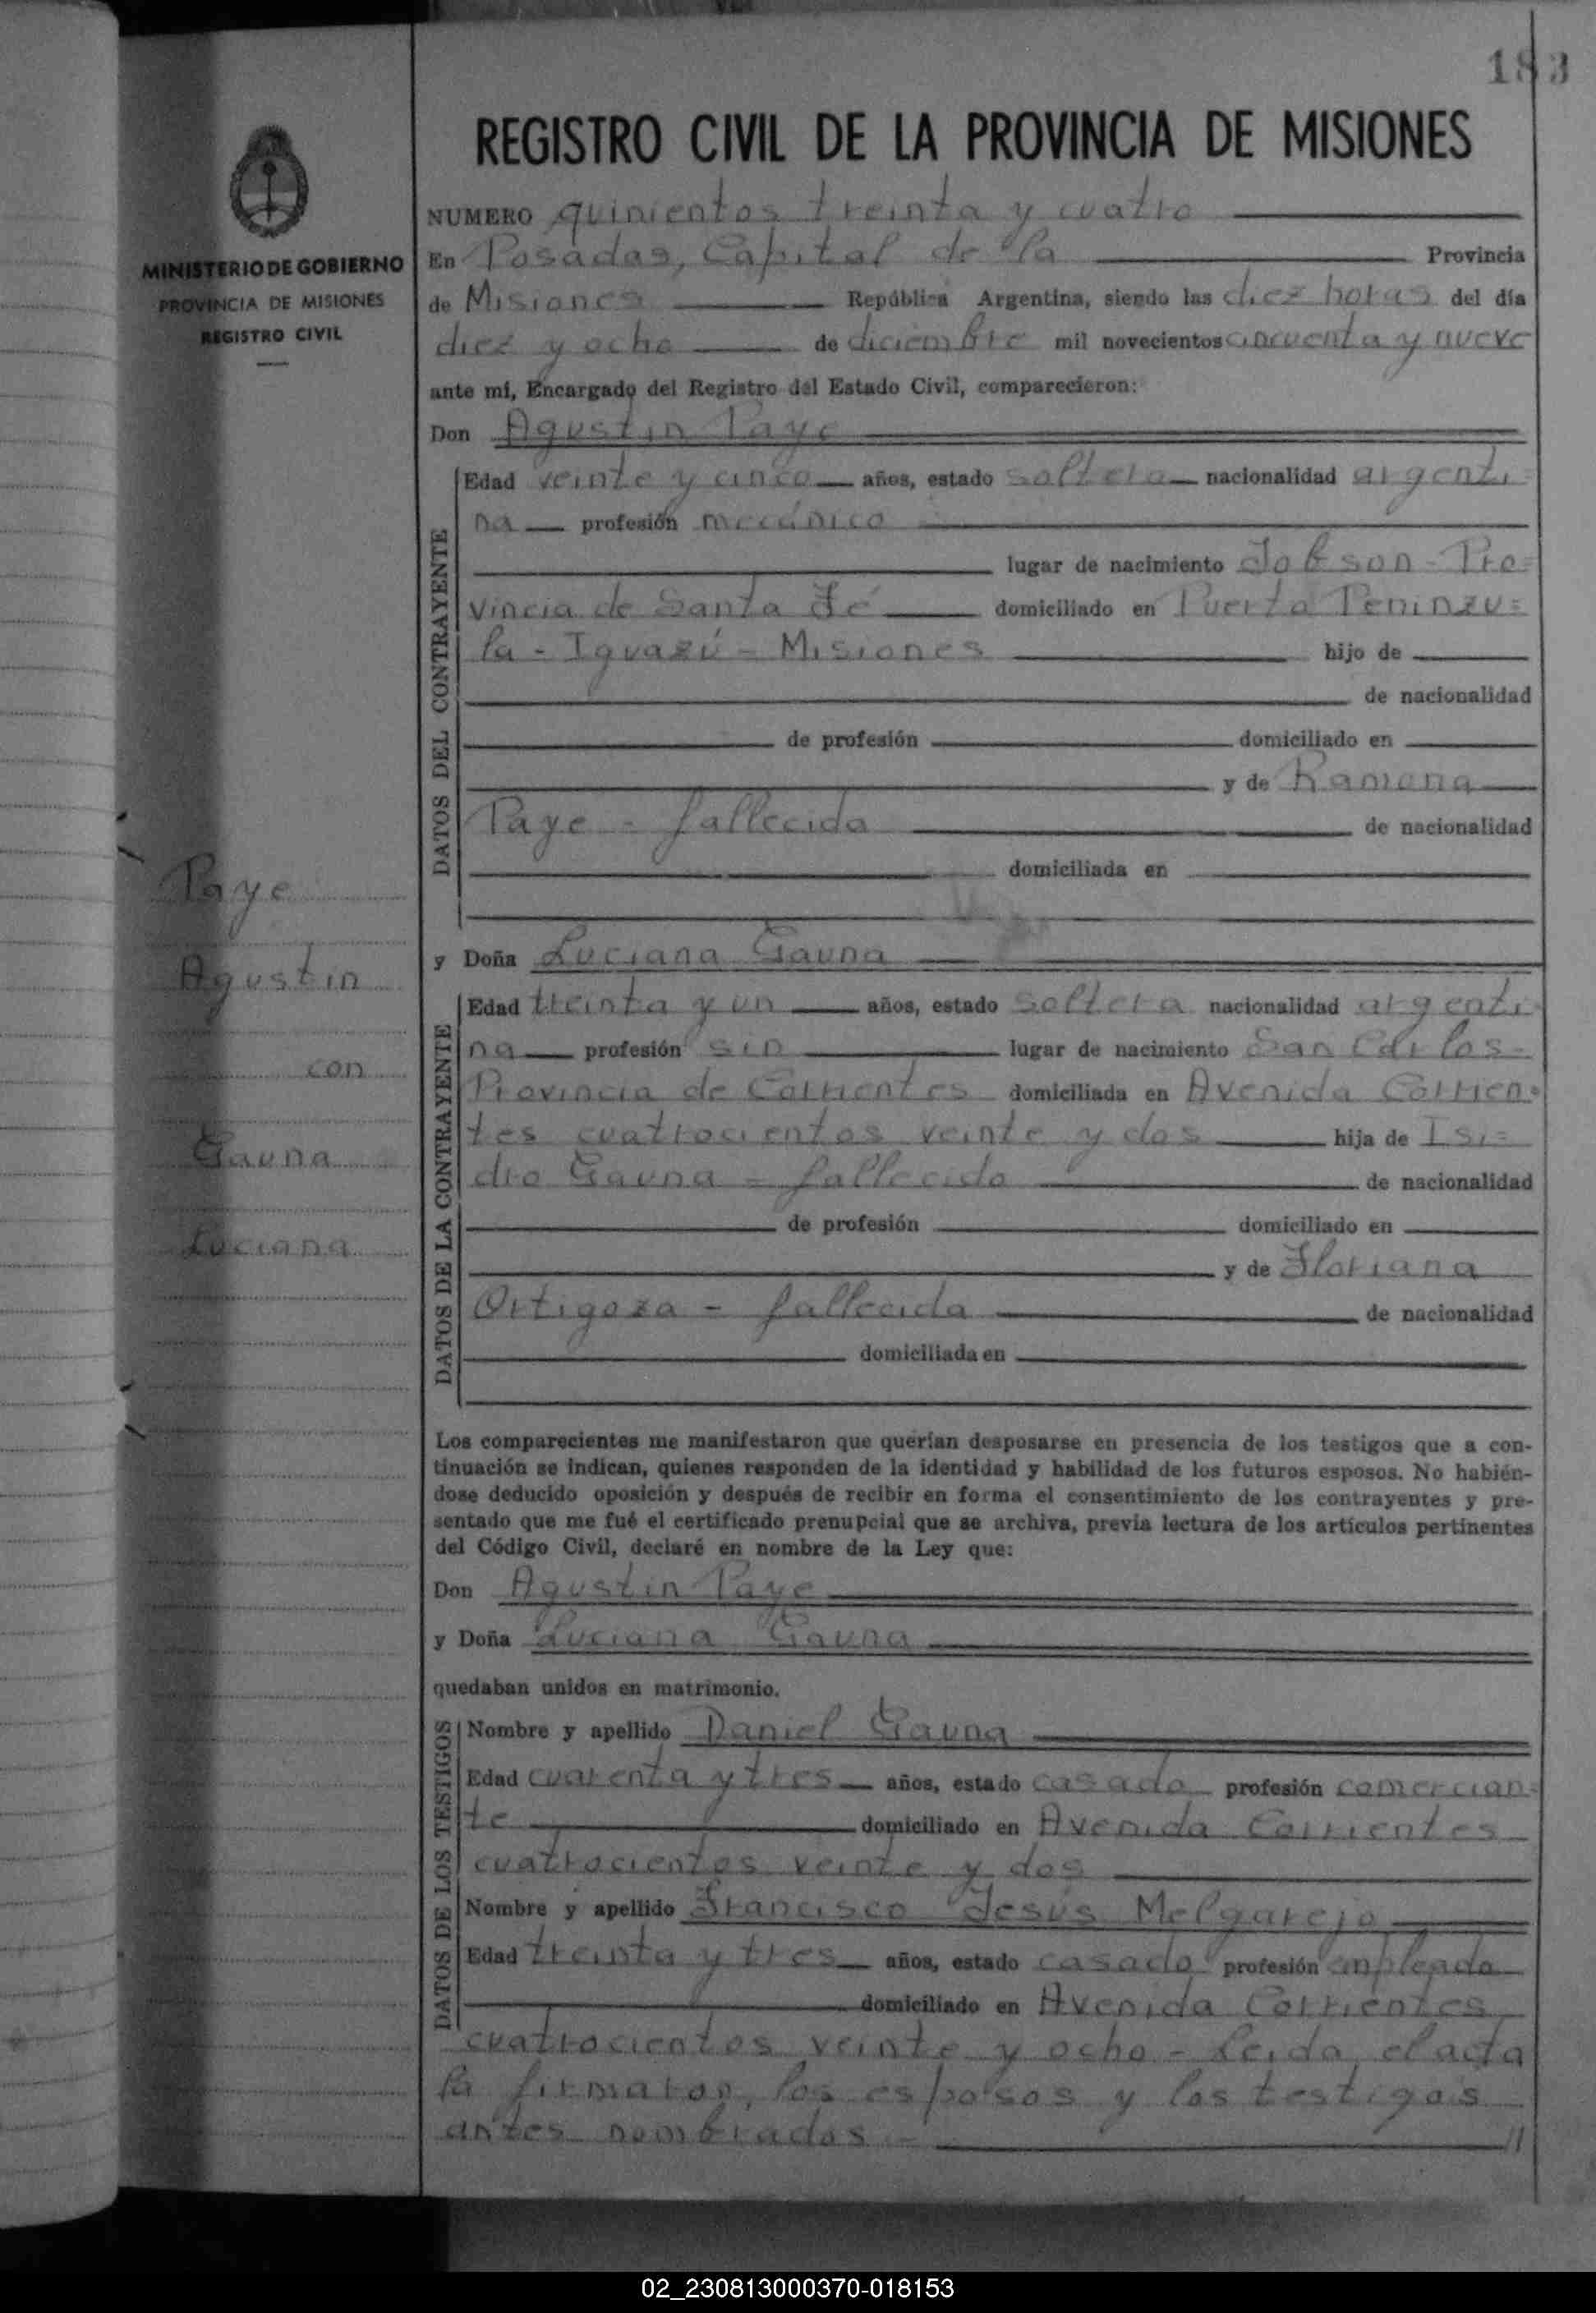 183
REGISTRO CIVIL DE LA PROVINCIA DE MISIONES
MINISTERIO DE GOBIERNO
PROVINCIA DE MISIONES
REGISTRO CIVIL
Paye
Agustin
con
Gauna
Luciana
NUMERO quinientos treinta y cuatro
En Posadas, Capital de la Provincia
de Misiones República Argentina, siendo las diez horas del día
diez y ocho de diciembre mil novecientos cincuenta y nueve
ante mí, Encargado del Registro del Estado Civil, comparecieron:
Don Agustin Paye
DATOS DEL CONTRAYENTE
Edad veinte y cinco años, estado soltero nacionalidad argenti=
na profesión mecánico
lugar de nacimiento Jobson - Pro=
vincia de Santa Fé domiciliado en Puerto Peninzu=
la - Iguazú - Misiones hijo de
de nacionalidad
de profesión domiciliado en
y de Ramona
Paye - fallecida de nacionalidad
domiciliada en
y Doña Luciana Gauna
DATOS DE LA CONTRAYENTE
Edad treinta y un años, estado soltera nacionalidad argenti=
na profesión sin lugar de nacimiento San Carlos -
Provincia de Corrientes domiciliada en Avenida Corrien=
tes cuatrocientos veinte y dos hija de Isi=
dro Gauna - fallecido de nacionalidad
de profesión domiciliado en
y de Floriana
Ortigoza - fallecida de nacionalidad
domiciliada en
Los comparecientes me manifestaron que querían desposarse en presencia de los testigos que a con-
tinuación se indican, quienes responden de la identidad y habilidad de los futuros esposos. No habién-
dose deducido oposición y después de recibir en forma el consentimiento de los contrayentes y pre-
sentado que me fué el certificado prenupcial que se archiva, previa lectura de los artículos pertinentes
del Código Civil, declaré en nombre de la Ley que:
Don Agustin Paye
y Doña Luciana Gauna
quedaban unidos en matrimonio.
DATOS DE LOS TESTIGOS
Nombre y apellido Daniel Gauna
Edad cuarenta y tres años, estado casado profesión comercian=
te domiciliado en Avenida Corrientes
cuatrocientos veinte y dos
Nombre y apellido Francisco Jesús Melgarejo
Edad treinta y tres años, estado casado profesión empleado
domiciliado en Avenida Corrientes
cuatrocientos veinte y ocho - Leida el acta
la firmaron, los esposos y los testigos
antes nombrados - //
02_230813000370-018153